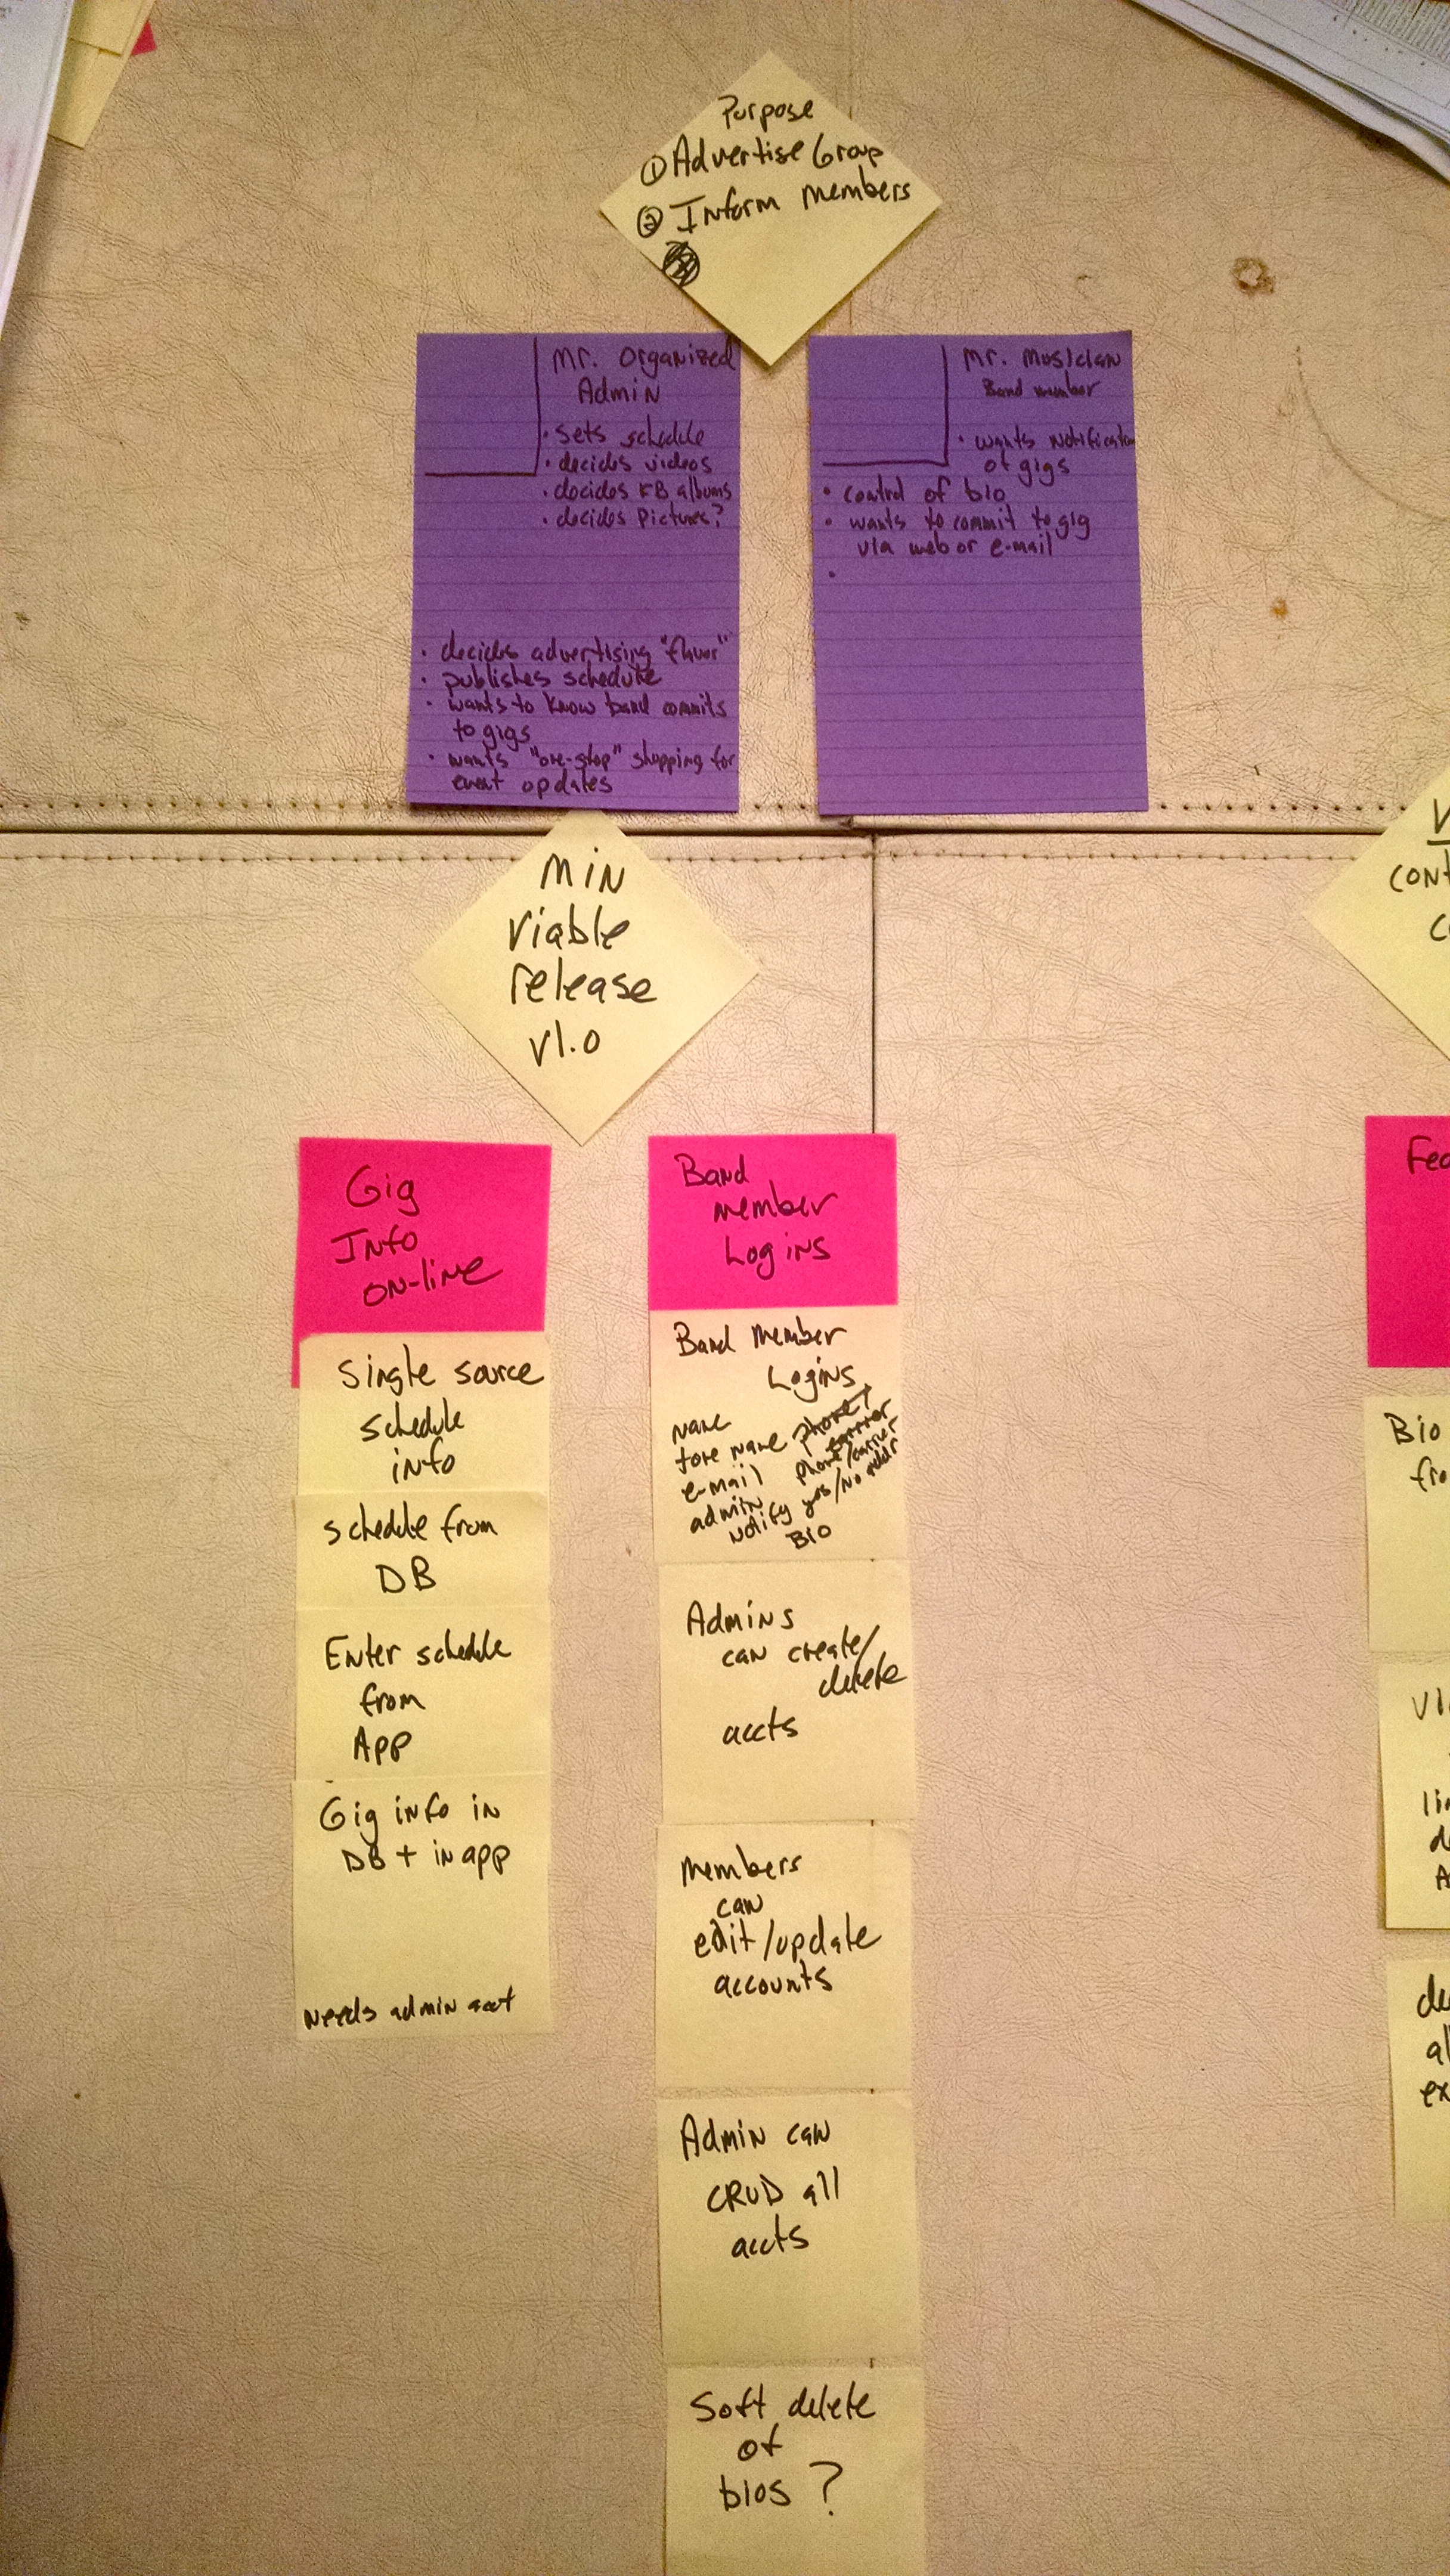 Purpose
① Advertise Group
② Inform members
Mr. Organized
Admin
• sets schedule
• decides videos
• decides FB albums
• decides Pictures?
• decides advertising "flavor"
• publishes schedule
• wants to know band commits
to gigs
• wants "one-stop" shopping for
event updates
Mr. Musician
Band member
• wants notification
of gigs
• control of bio
• wants to commit to gig
via web or e-mail
•
Min
viable
release
v1.0
Gig
Info
on-line
Single source
schedule
info
schedule from
DB
Enter schedule
from
App
Gig info in
DB + in app
needs admin acct
Band
member
Logins
Band Member
Logins
name
fore name
e-mail
admin
notify yes/no addr
phone/carrier
Bio
Admins
can create/
delete
accts
Members
can
edit/update
accounts
Admin can
CRUD all
accts
Soft delete
of
bios ?
V
cont
Fea
Bio
fro
li
de
al
ex